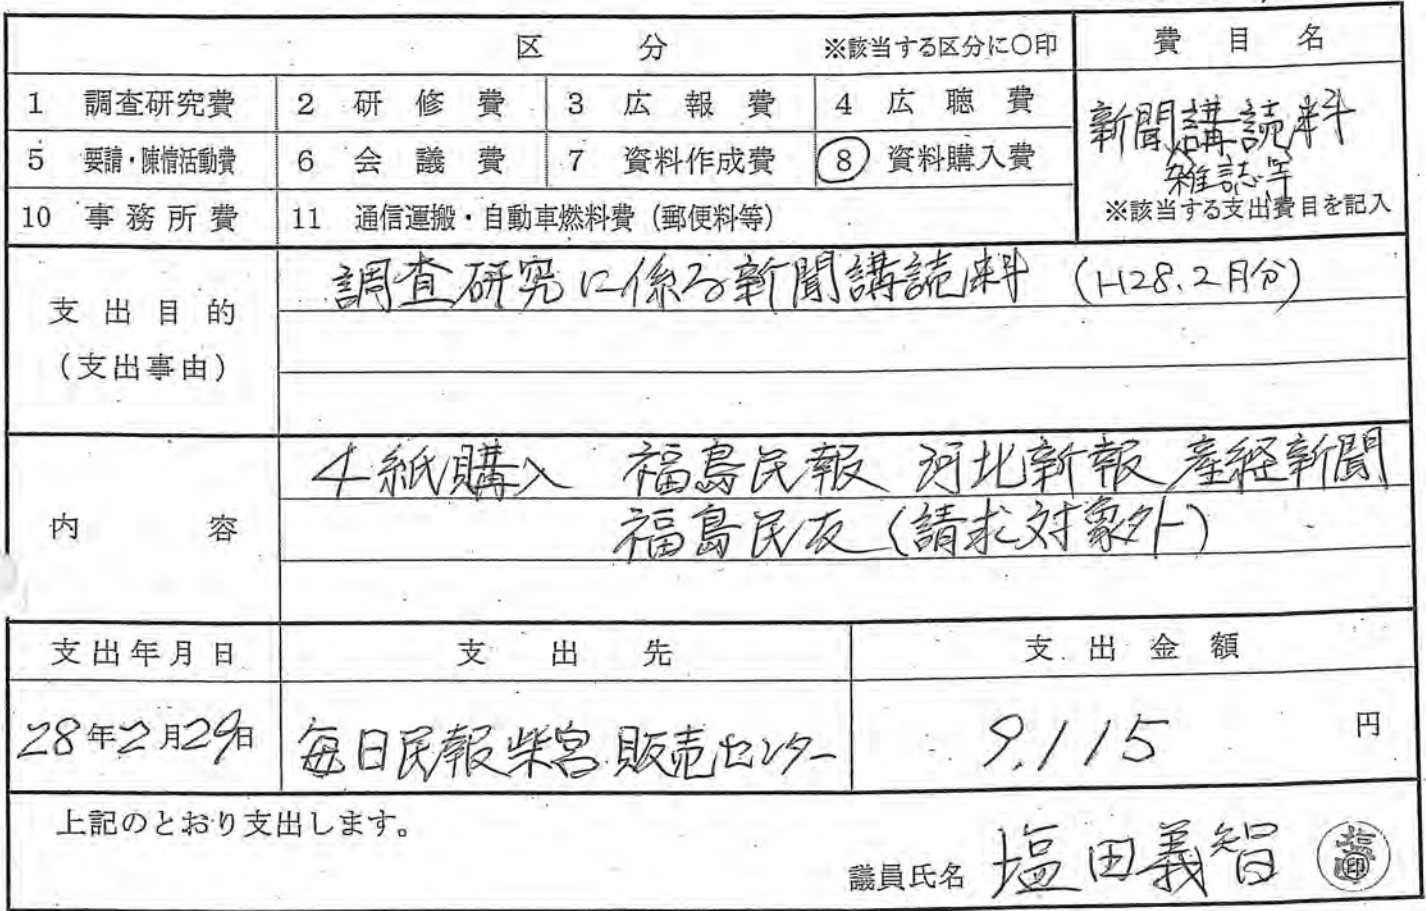 区分 ※該当する区分に○印 費目名
1 調査研究費 2 研修費 3 広報費 4 広聴費
新聞講読料
5 要請・陳情活動費 6 会議費 7 資料作成費 8 資料購入費
雑誌等
10 事務所費 11 通信運搬・自動車燃料費(郵便料等)
※該当する支出費目を記入
支出目的
(支出事由)
調査研究に係る新聞講読料 (H28.2月分)
内容
4紙購入 福島民報 河北新報 産経新聞
福島民友(請求対象外)
支出年月日 支出先 支出金額
28年2月29日 毎日民報柴宮販売センター 9,115 円
上記のとおり支出します。
議員氏名 塩田義智 印